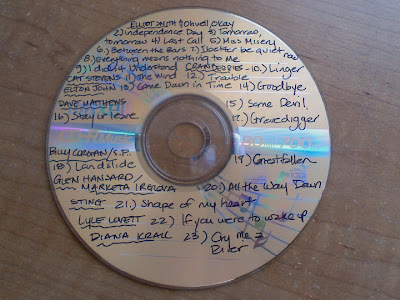 ELLIOTT SMITH 1) Oh well, okay
2) Independence Day 3) Tomorrow,
tomorrow 4) Last Call 5) Miss Misery
6.) Between the Bars 7.) Better be quiet now
8.) Everything means nothing to me
9.) I didn't Understand CRANBERRIES - 10.) Linger
CAT STEVENS 11) The Wind 12.) Trouble
ELTON JOHN 13) Come Down in Time 14) Goodbye
DAVE MATTHEWS 15) Some Devil
16) Stay or leave 17.) Gravedigger
BILLY CORGAN/S.P.
18) Landslide 19) Ghestfallen
GLEN HANSARD/
MARKETA IRGLOVA 20.) All the Way Down
STING 21.) Shape of my heart
LYLE LOVETT 22.) If you were to wake up
DIANA KRALL 23.) Cry me a
River